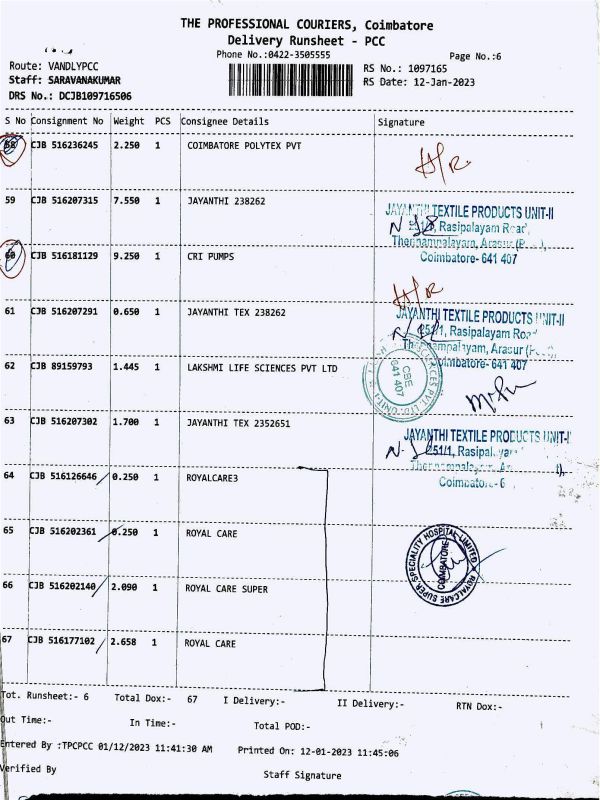 THE PROFESSIONAL COURIERS, Coimbatore
Delivery Runsheet - PCC
Phone No.:0422-3505555
Page No.:6
Route: VANDLYPCC
RS No.: 1097165
Staff: SARAVANAKUMAR
RS Date: 12-Jan-2023
DRS No.: DCJB109716506
S No Consignment No Weight PCS Consignee Details Signature
58 CJB 516236245 2.250 1 COIMBATORE POLYTEX PVT
H/R
59 CJB 516207315 7.550 1 JAYANTHI 238262
JAYANTHI TEXTILE PRODUCTS UNIT-II
251/1, Rasipalayam Road,
Thennampalayam, Arasur
Coimbatore- 641 407
60 CJB 516181129 9.250 1 CRI PUMPS
H/R
61 CJB 516207291 0.650 1 JAYANTHI TEX 238262
JAYANTHI TEXTILE PRODUCTS UNIT-II
251/1, Rasipalayam Road
Thennampalayam, Arasur
Coimbatore- 641 407
62 CJB 89159793 1.445 1 LAKSHMI LIFE SCIENCES PVT LTD
CBE
641 407
PVT. LTD. UNIT-I
63 CJB 516207302 1.700 1 JAYANTHI TEX 2352651
JAYANTHI TEXTILE PRODUCTS UNIT-I
251/1, Rasipalayam
Coimbatore- 6
64 CJB 516126646 0.250 1 ROYALCARE3
65 CJB 516202361 0.250 1 ROYAL CARE
ROYALCARE SUPER SPECIALITY HOSPITAL LIMITED
COIMBATORE
66 CJB 516202140 2.090 1 ROYAL CARE SUPER
67 CJB 516177102 2.658 1 ROYAL CARE
Tot. Runsheet:- 6 Total Dox:- 67 I Delivery:- II Delivery:- RTN Dox:-
Out Time:- In Time:- Total POD:-
Entered By :TPCPCC 01/12/2023 11:41:30 AM Printed On: 12-01-2023 11:45:06
Verified By
Staff Signature